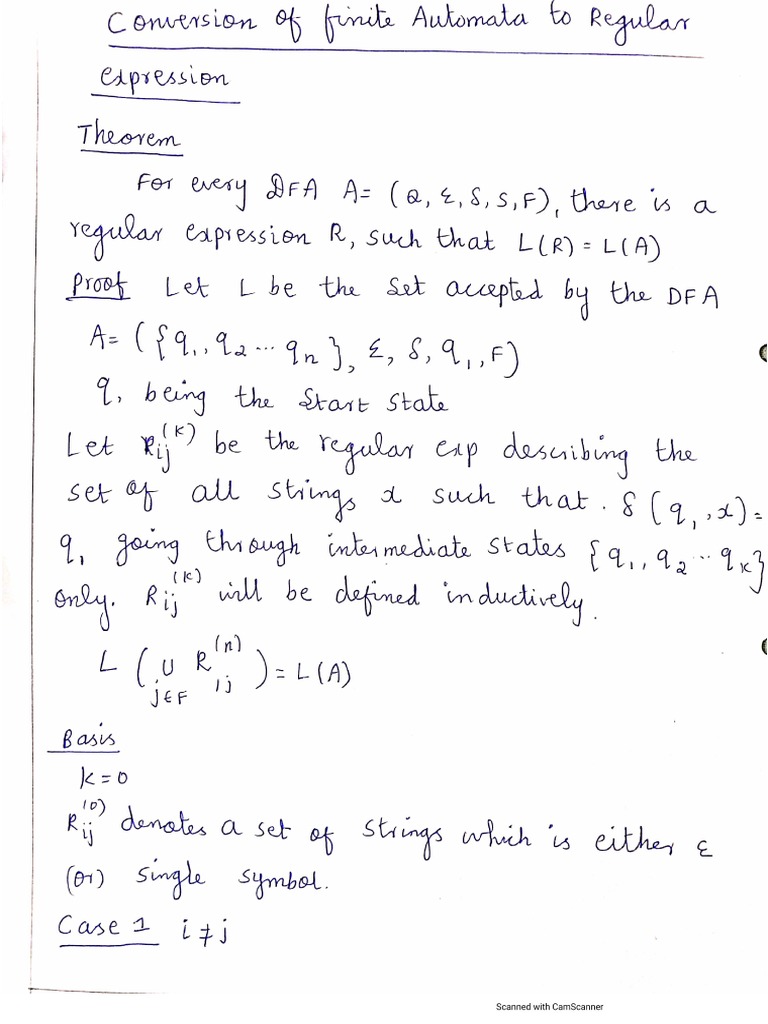 Conversion of finite Automata to Regular
expression
Theorem
For every DFA A= (Q, Σ, δ, S, F), there is a
regular expression R, such that L(R) = L(A)
Proof Let L be the set accepted by the DFA
A= ({q₁, q₂ ... qₙ}, Σ, δ, q₁, F)
q₁ being the start state
Let Rᵢⱼ⁽ᴷ⁾ be the regular exp describing the
set of all strings x such that . δ (q₁, x) =
q₁ going through intermediate states {q₁, q₂ ... qₖ}
only. Rᵢⱼ⁽ᴷ⁾ will be defined inductively.
L (∪ j∈F R₁ⱼ⁽ⁿ⁾) = L(A)
Basis
k = 0
Rᵢⱼ⁽⁰⁾ denotes a set of strings which is either ε
(or) single symbol.
Case 1 i ≠ j
Scanned with CamScanner